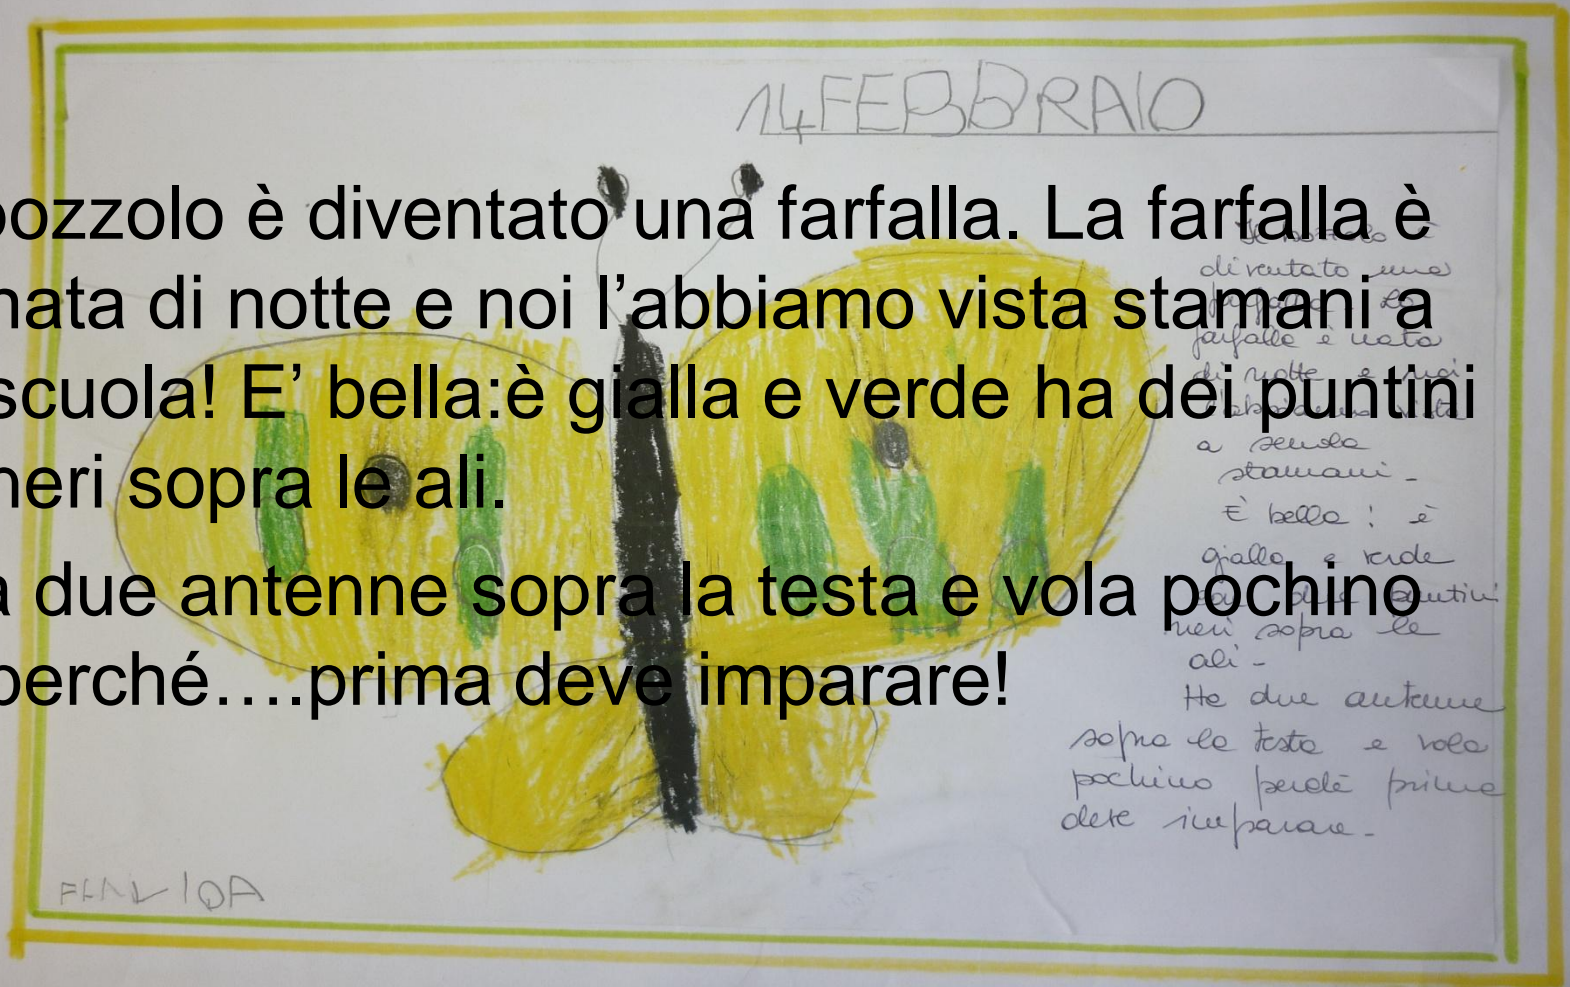 14 FEBBRAIO
bozzolo è diventato una farfalla. La farfalla è
nata di notte e noi l’abbiamo vista stamani a
scuola! E’ bella:è gialla e verde ha dei puntini
neri sopra le ali.
a due antenne sopra la testa e vola pochino
perché….prima deve imparare!
Il bozzolo è
diventato una
farfalla. La
farfalla è nata
di notte e noi
l'abbiamo vista
a scuola
stamani -
È bella : è
gialla e verde
puntini
neri sopra le
ali -
Ha due antenne
sopra la testa e vola
pochino perchè prima
deve imparare -